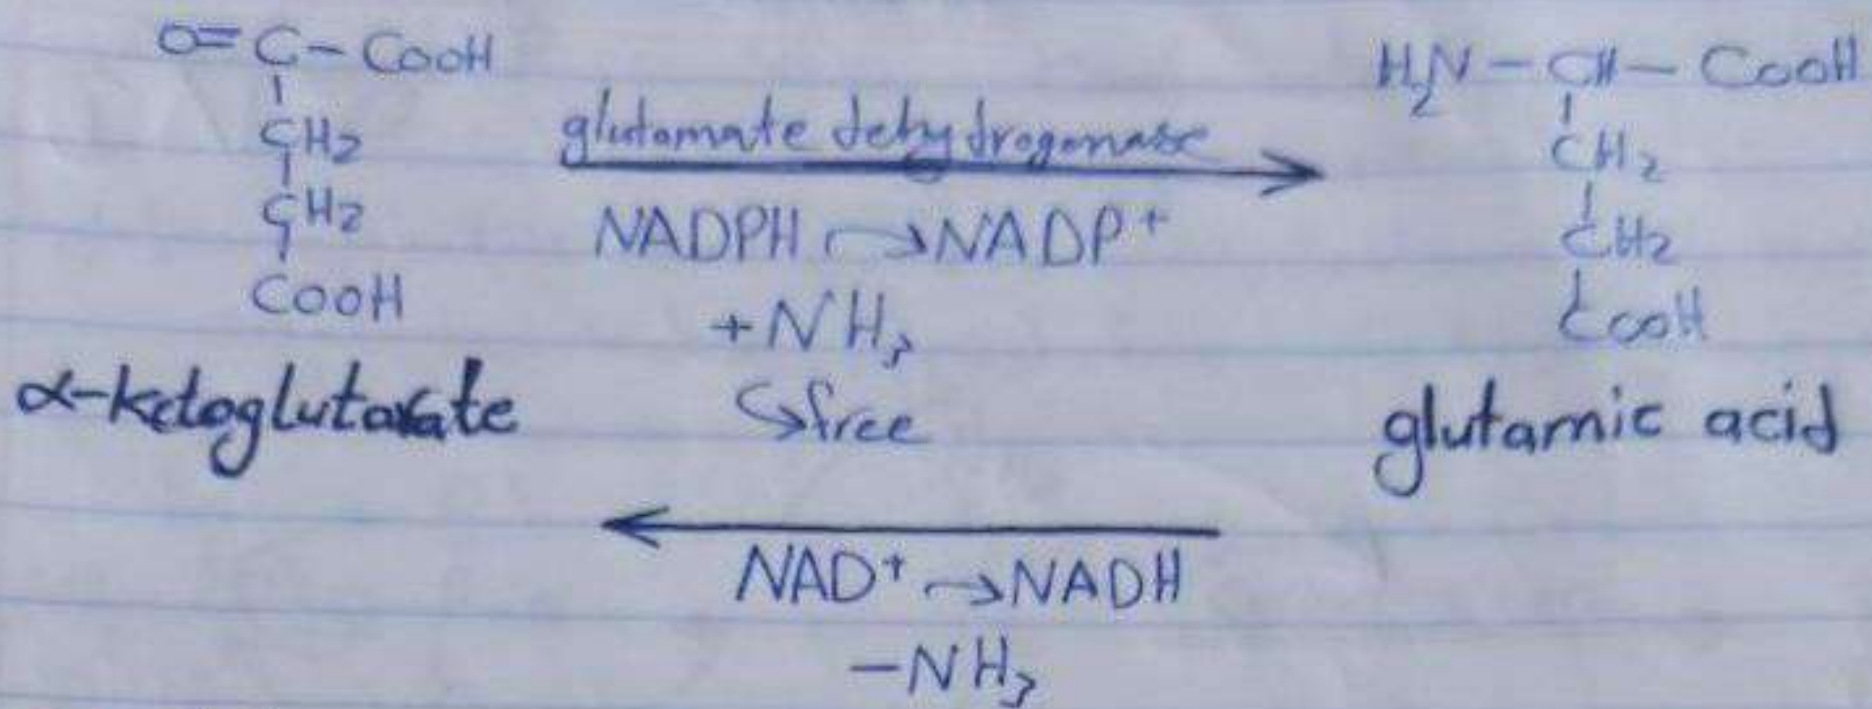 O=C-COOH
CH2
CH2
COOH
α-ketoglutarate
glutamate dehydrogenase
NADPH → NADP+
+NH3
↳free
H2N-CH-COOH
CH2
CH2
COOH
glutamic acid
NAD+ → NADH
-NH3